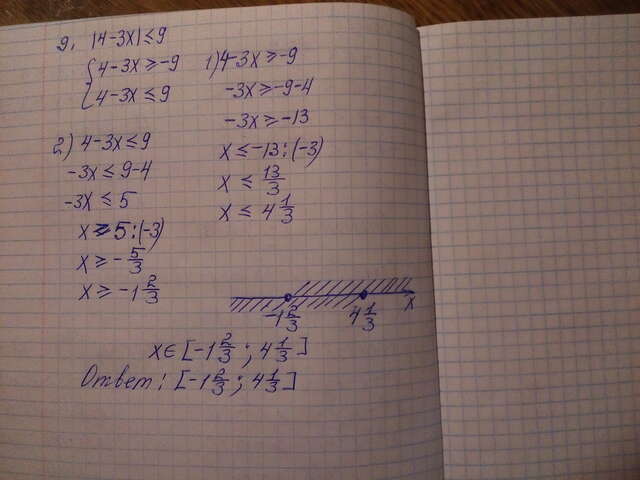 9. |4-3x|≤9
{4-3x≥-9
{4-3x≤9
1) 4-3x≥-9
-3x≥-9-4
-3x≥-13
x≤-13:(-3)
x≤13/3
x≤4 1/3
2) 4-3x≤9
-3x≤9-4
-3x≤5
x≥5:(-3)
x≥-5/3
x≥-1 2/3
-1 2/3 4 1/3 x
x∈[-1 2/3; 4 1/3]
Ответ: [-1 2/3; 4 1/3]